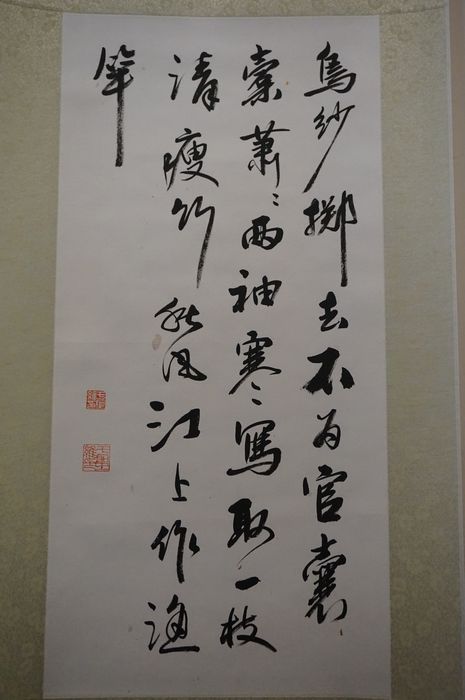 烏紗擲去不为官囊
橐蕭〻兩袖寒寫取一枝
清瘦竹秋风江上作漁
竿